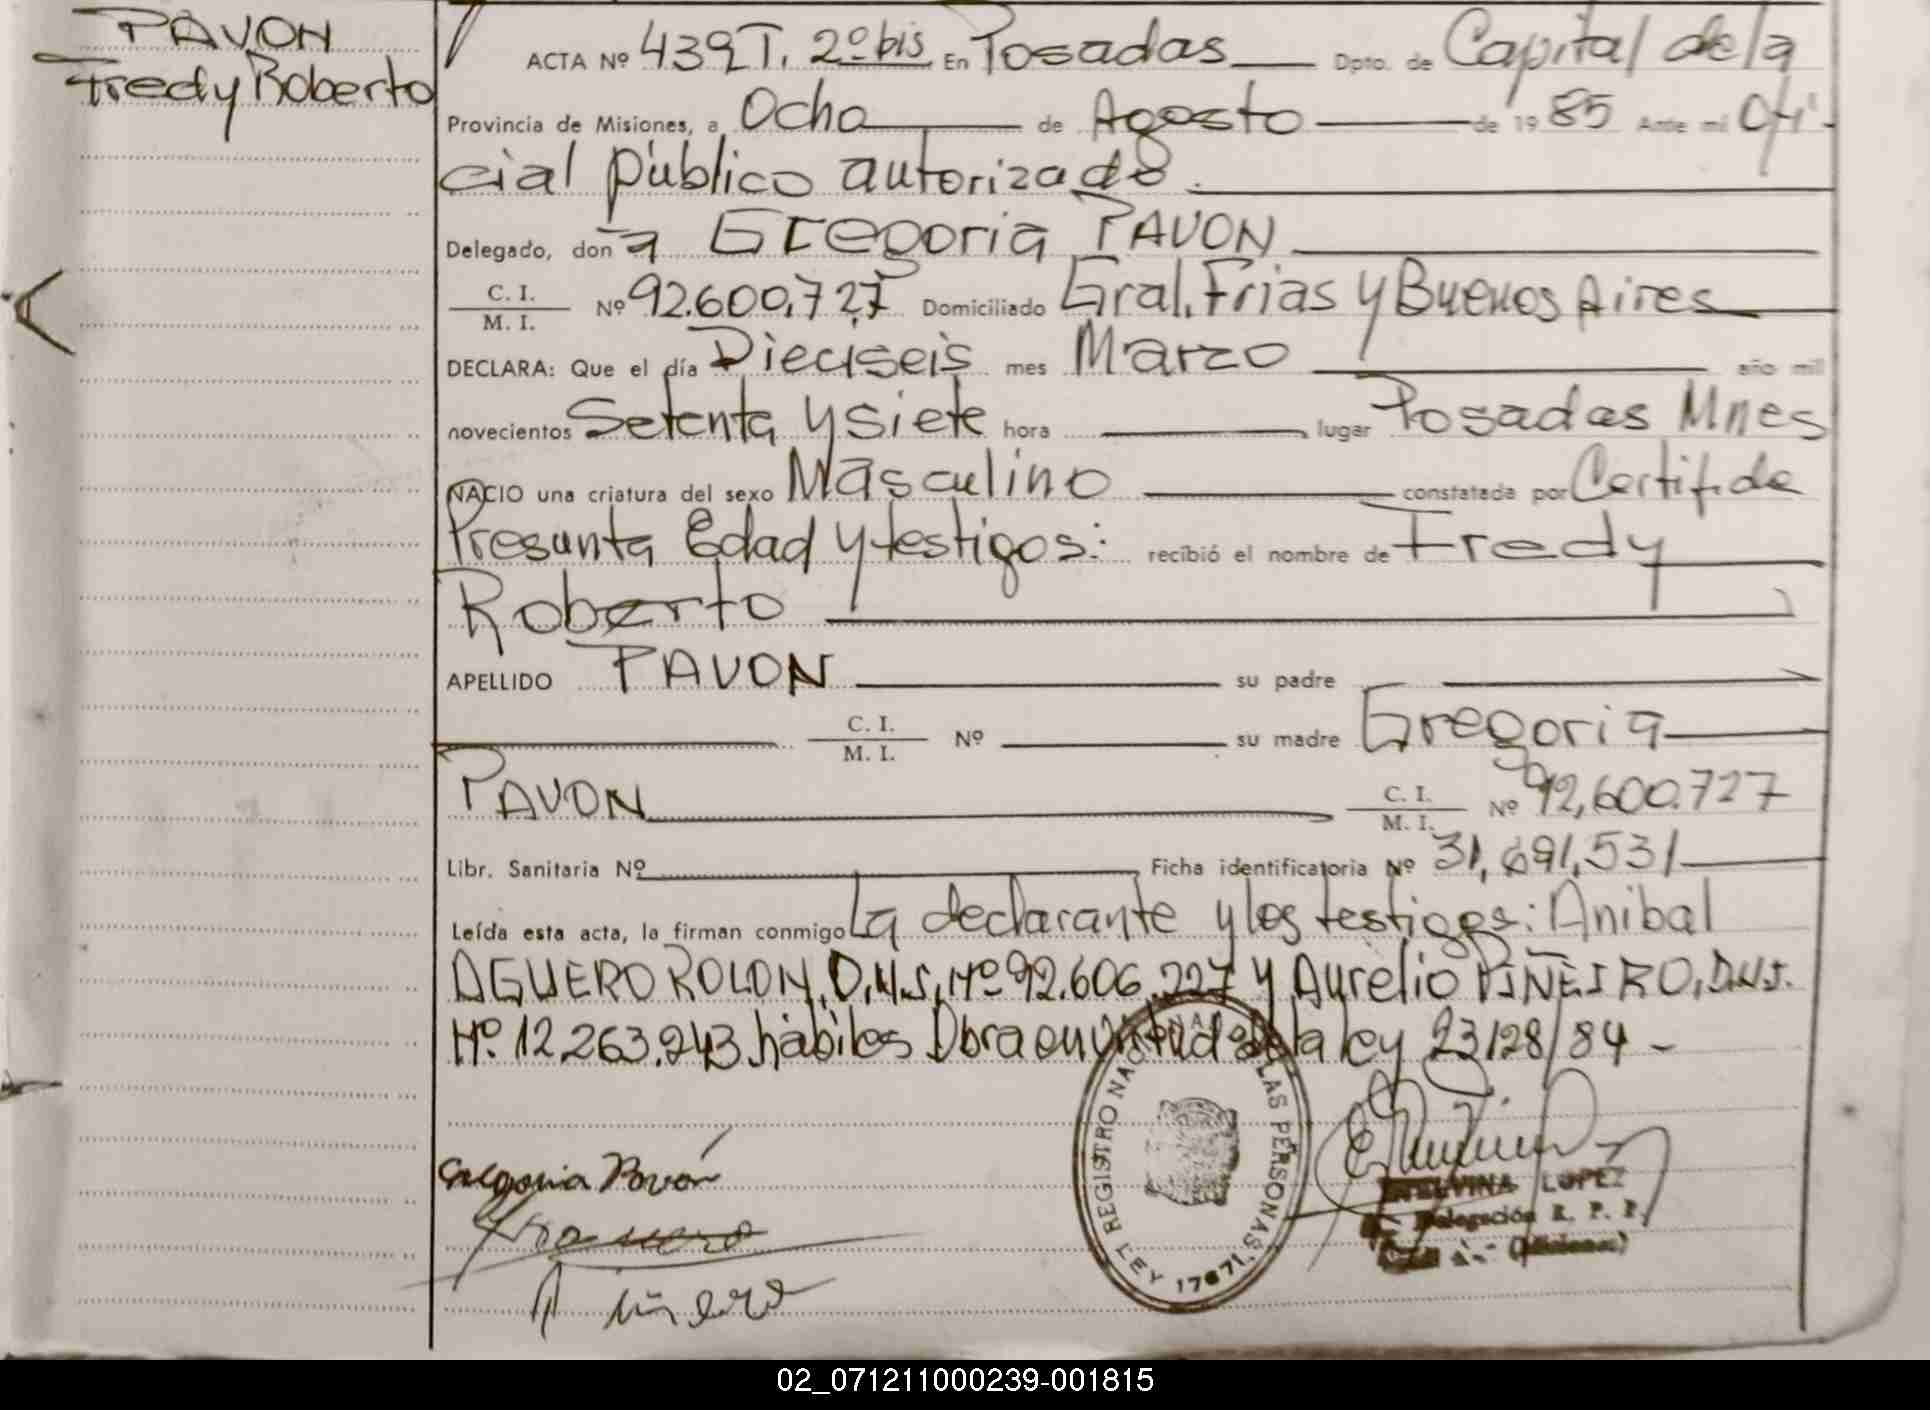 PAVON
Fredy Roberto
ACTA Nº 439 T. 2º bis En Posadas Dpto. de Capital de la
Provincia de Misiones, a Ocho de Agosto de 19 85 Ante mi Ofi-
cial público autorizado.
Delegado, don a Gregoria PAVON
C. I. / M. I. Nº 92.600.727 Domiciliado Gral. Frias y Buenos Aires
DECLARA: Que el día Dieciseis mes Marzo año mil
novecientos Setenta y siete hora lugar Posadas Mnes
NACIO una criatura del sexo Masculino constatada por Certif. de
Presunta Edad y testigos: recibió el nombre de Fredy
Roberto
APELLIDO PAVON su padre
C. I. / M. I. Nº su madre Gregoria
PAVON C. I. / M. I. Nº 92,600.727
Libr. Sanitaria Nº Ficha identificatoria Nº 31,691,531
Leída esta acta, la firman conmigo La declarante y los testigos: Anibal
AGUERO ROLON, D.N.I. Nº 92.606.227 y Aurelio PIÑEIRO, D.N.I.
Nº 12.263.243 hábiles Obra en virtud de la ley 23128/84 -
Gregoria Pavón
REGISTRO NACIONAL DE LAS PERSONAS
LEY 17671
ETELVINA LOPEZ
Delegación R. P. P.
02_071211000239-001815